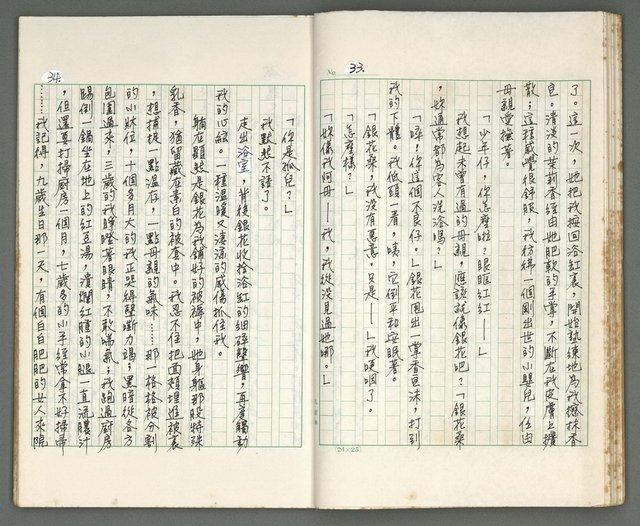 No. 33.
了。這一次,她把我按回浴缸裏,開始熟練地為我擦抹香
皂。清淡的茉莉香經由她肥軟的手掌,不斷在我皮膚上擴
散;這種感覺很舒服,我彷彿一個剛出世的小嬰兒,任由
母親愛撫著。
「少年仔,你怎麼啦?眼眶紅紅——」
我想起未曾有過的母親,應該就像銀花吧?「銀花桑
,妳通常都為客人洗浴嗎?」
「啐!你這個不良仔。」銀花甩出一掌香皂沫,打到
我的下體。我低頭一看,咦,它倒平和安眠著。
「銀花桑,我沒有惡意。只是——」我哽咽了。
「怎麼樣?」
「妳像我阿母——我,我從沒見過她哪。」
(24×25)
34.
「你是孤兒?」
我默默不語了。
走出浴室,背後銀花收拾浴缸的細碎聲響,再度觸動
我的心絃。一種溫暖又淒滿的感傷抓住我。
躺在顯然是銀花為我鋪好的被褥中,她身軀那股特殊
乳香,猶留藏在素白的被套中。我忍不住把面頰埋進被裏
,想捕捉一點溫存,一點母親的氣味……那一格格被分割
的小床位,十個多月大的我正哭得聲嘶力竭;黑暗從各方
包圍過來,三歲的我睜瞪著眼睛,不敢喘氣;我跑過廚房
踢倒一鍋坐在地上的紅豆湯,潰爛紅腫的小腿一直流膿汁
,但還要打掃廚房一個月,七歲多的小手經常拿不好掃帚
……我記得,九歲生日那一天,有個白白肥肥的女人來院